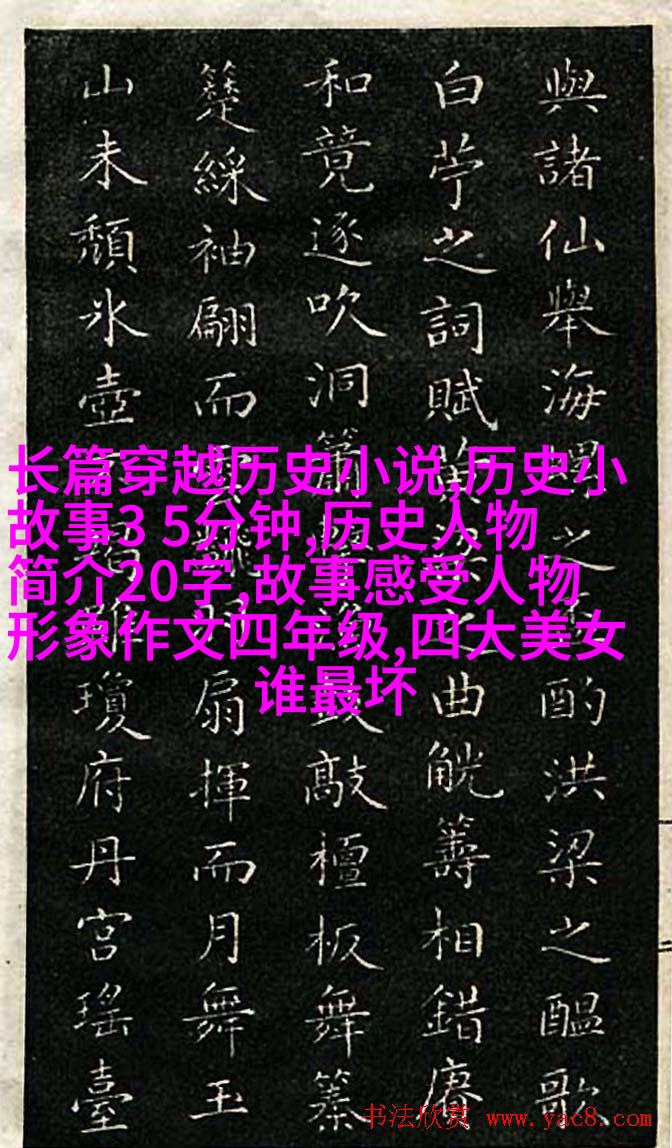 與諸仙舉海之酌洪梁之醖歌
白苧之詞賦梁之曲觥籌相錯賡
和競逐吹洞簫鼓敲檀板舞
綵袖翩而雲羽扇揮而月舞玉
山未頹氷壺瓊府丹宮瑤臺
长篇穿越历史小说,历史小
故事3 5分钟,历史人物
简介20字,故事感受人物
形象作文四年级,四大美女
谁最坏
书法欣赏 www.yac8.com